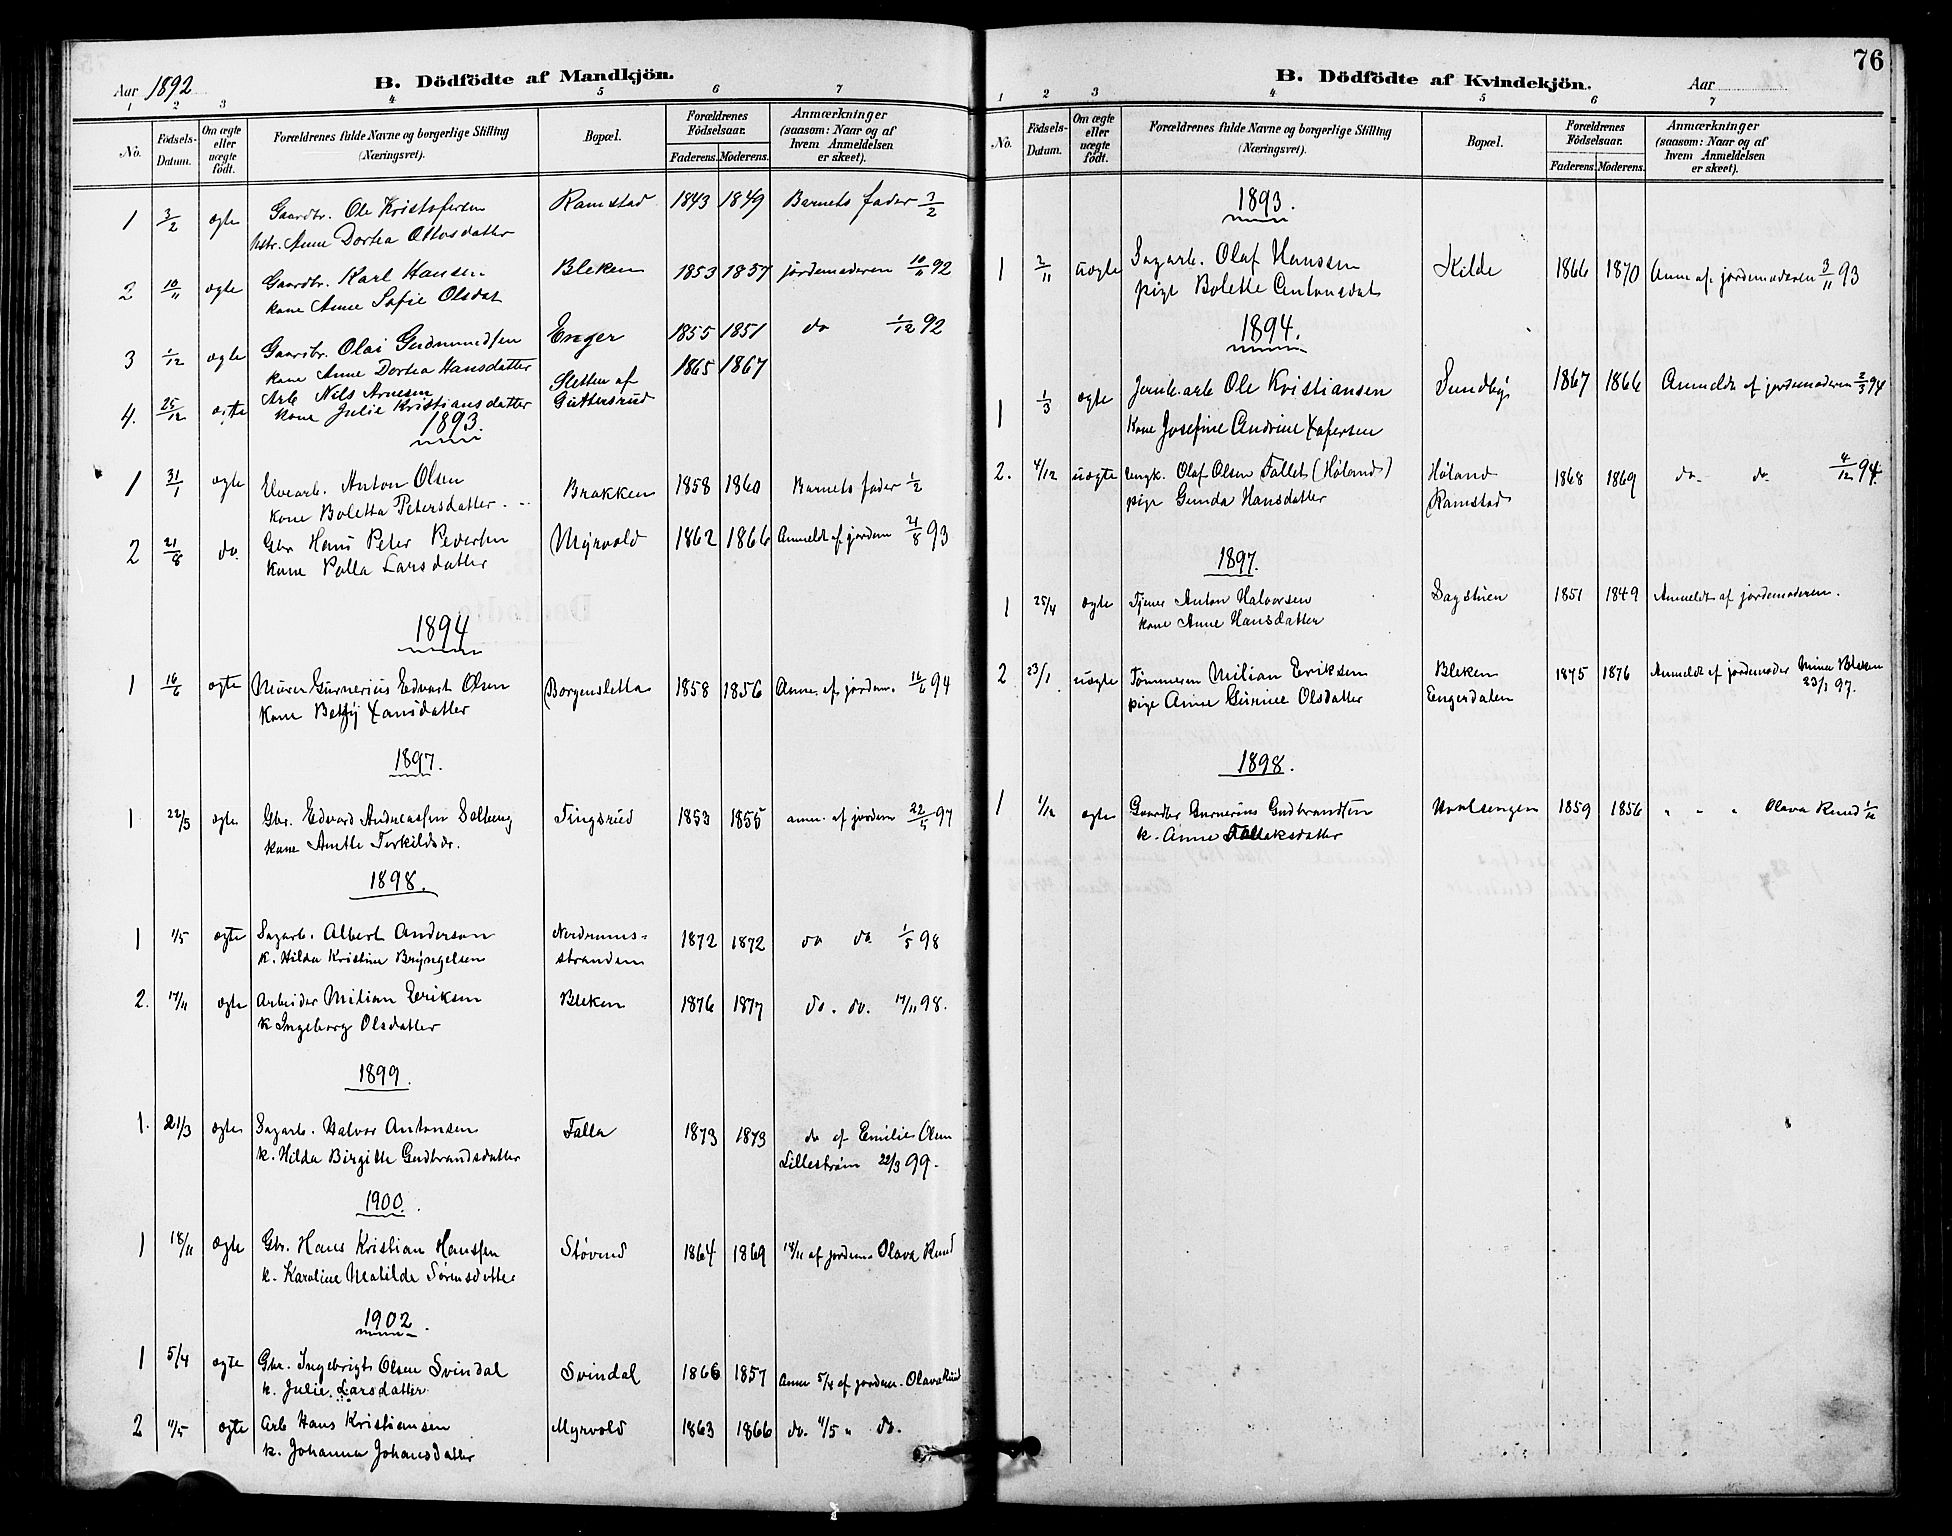 Aar 1892
B. Dödfödte af Mandkjön.
1 2 3 4 5 6 7
No. Födsels-Datum. Om ægte eller uægte födt. Forældrenes fulde Navne og borgerlige Stilling (Næringsvei). Bopæl. Forældrenes Födselsaar. Faderens. Moderens. Anmærkninger (saasom: Naar og af hvem Anmeldelsen er skeet).
1 3/2 ægte Gaardbr. Ole Kristofersen Ramstad 1843 1849 Barnets fader 3/2
hstr. Anne Dortea Ottosdatter
2 10/11 ægte Gaardbr. Karl Hansen Bleken 1853 1857 jordemoderen 10/11 92
kone Anne Sofie Olsdat
3 1/12 ægte Gaardbr. Olai Gudmundsen Enger 1855 1851 do 1/12 92
kone Anne Dortea Hansdatter
4. 25/12 ægte Arb Nils Arnesen Sletten af 1865 1867
kone Julie Kristiansdatter Guttersrud
1893.
1 31/1 ægte Elvearb. Anton Olsen Brakken 1858 1860 Barnets fader 1/2
kone Boletta Petersdatter.
2 21/8 do. Gbr Hans Peter Pedersen Myrvold 1862 1866 Anmeldt af jordem 21/8 93
kone Palla Larsdatter
1894
1 16/6 ægte Murer Gunerius Edvart Olsen Borgensletta 1858 1856 Anm. af jordem. 16/6 94
kone Betsy Xansdatter
1897.
1 22/5 ægte Gbr. Edvard Andreassen Solberg Tingsrud 1853 1855 anm. af jordem 22/5 97
kone Anette Terkildsdr.
1898.
1 1/5 ægte Sagarb. Albert Anderson Nordrums- 1872 1872 do do. 1/5 98
k. Hilda Kristine Bryngelsen stranden
2. 17/11 ægte Arbeider Milian Eriksen Bleken 1876 1877 do. do. 17/11 98.
k Ingeborg Olsdatter
1899.
1. 21/3 ægte Sagarb. Halvor Antonsen Falla 1873 1873 do af Emilie Olsen
k. Hilda Birgitte Gudbrandsdatter Lillestrøm 22/3 99.
1900.
1 18/11 ægte Gbr. Hans Kristian Hanssen Støvind 1864 1869 18/11 af jordem Olava Ruud
k. Karoline Matilde Sørensdatter
1902.
1 5/4 ægte Gbr. Ingebrigt Olsen Svindal Svindal 1866 1857 Anm 5/4 af jordem. Olava Ruud
k. Julie Larsdatter
2 11/5 ægte Arb Hans Kristiansen Myrvold 1863 1866 do. 11/5 " do.
k. Johanna Johansdatter
76
B. Dödfödte af Kvindekjön. Aar
1 2 3 4 5 6 7
No. Födsels-Datum. Om ægte eller uægte födt. Forældrenes fulde Navne og borgerlige Stilling (Næringsvei). Bopæl. Forældrenes Födselsaar. Faderens. Moderens. Anmærkninger (saasom: Naar og af hvem Anmeldelsen er skeet).
1893.
1 2/11 uægte Sagarb. Olaf Hanssen Kilde 1866 1870 Anm af jordemoderen 3/11 93
pige Bolette Antonsdat
1894.
1 1/3 ægte Jernb.arb Ole Kristiansen Sundby 1867 1866 Anmeldt af jordemoderen 2/3 94
Kone Josefine Andrine Xofersen
2. 4/12 uægte Ungk. Olaf Olsen Fallet (Høland) Høland 1868 1869 do. do. 4/12 94.
pige Gunda Hansdatter Ramstad
1897.
1 25/4 ægte Tjener Anton Halvorsen Sagstuen 1851 1849 Anmeldt af jordemoderen.
kone Anne Hansdatter
2 23/1 uægte Tømmerm Milian Eriksen Bleken 1875 1876 Anmeldt af jordemoder Mina Bleken
pige Anne Gurine Olsdatter Engerdalen 23/1 97.
1898.
1 1/12 ægte Gaardbr Gunerius Gudbrandsen 1859 1856 " " " Olava Ruud 1/12
k. Anne Fallaksdatter